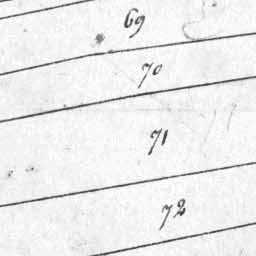 69
70
71
72